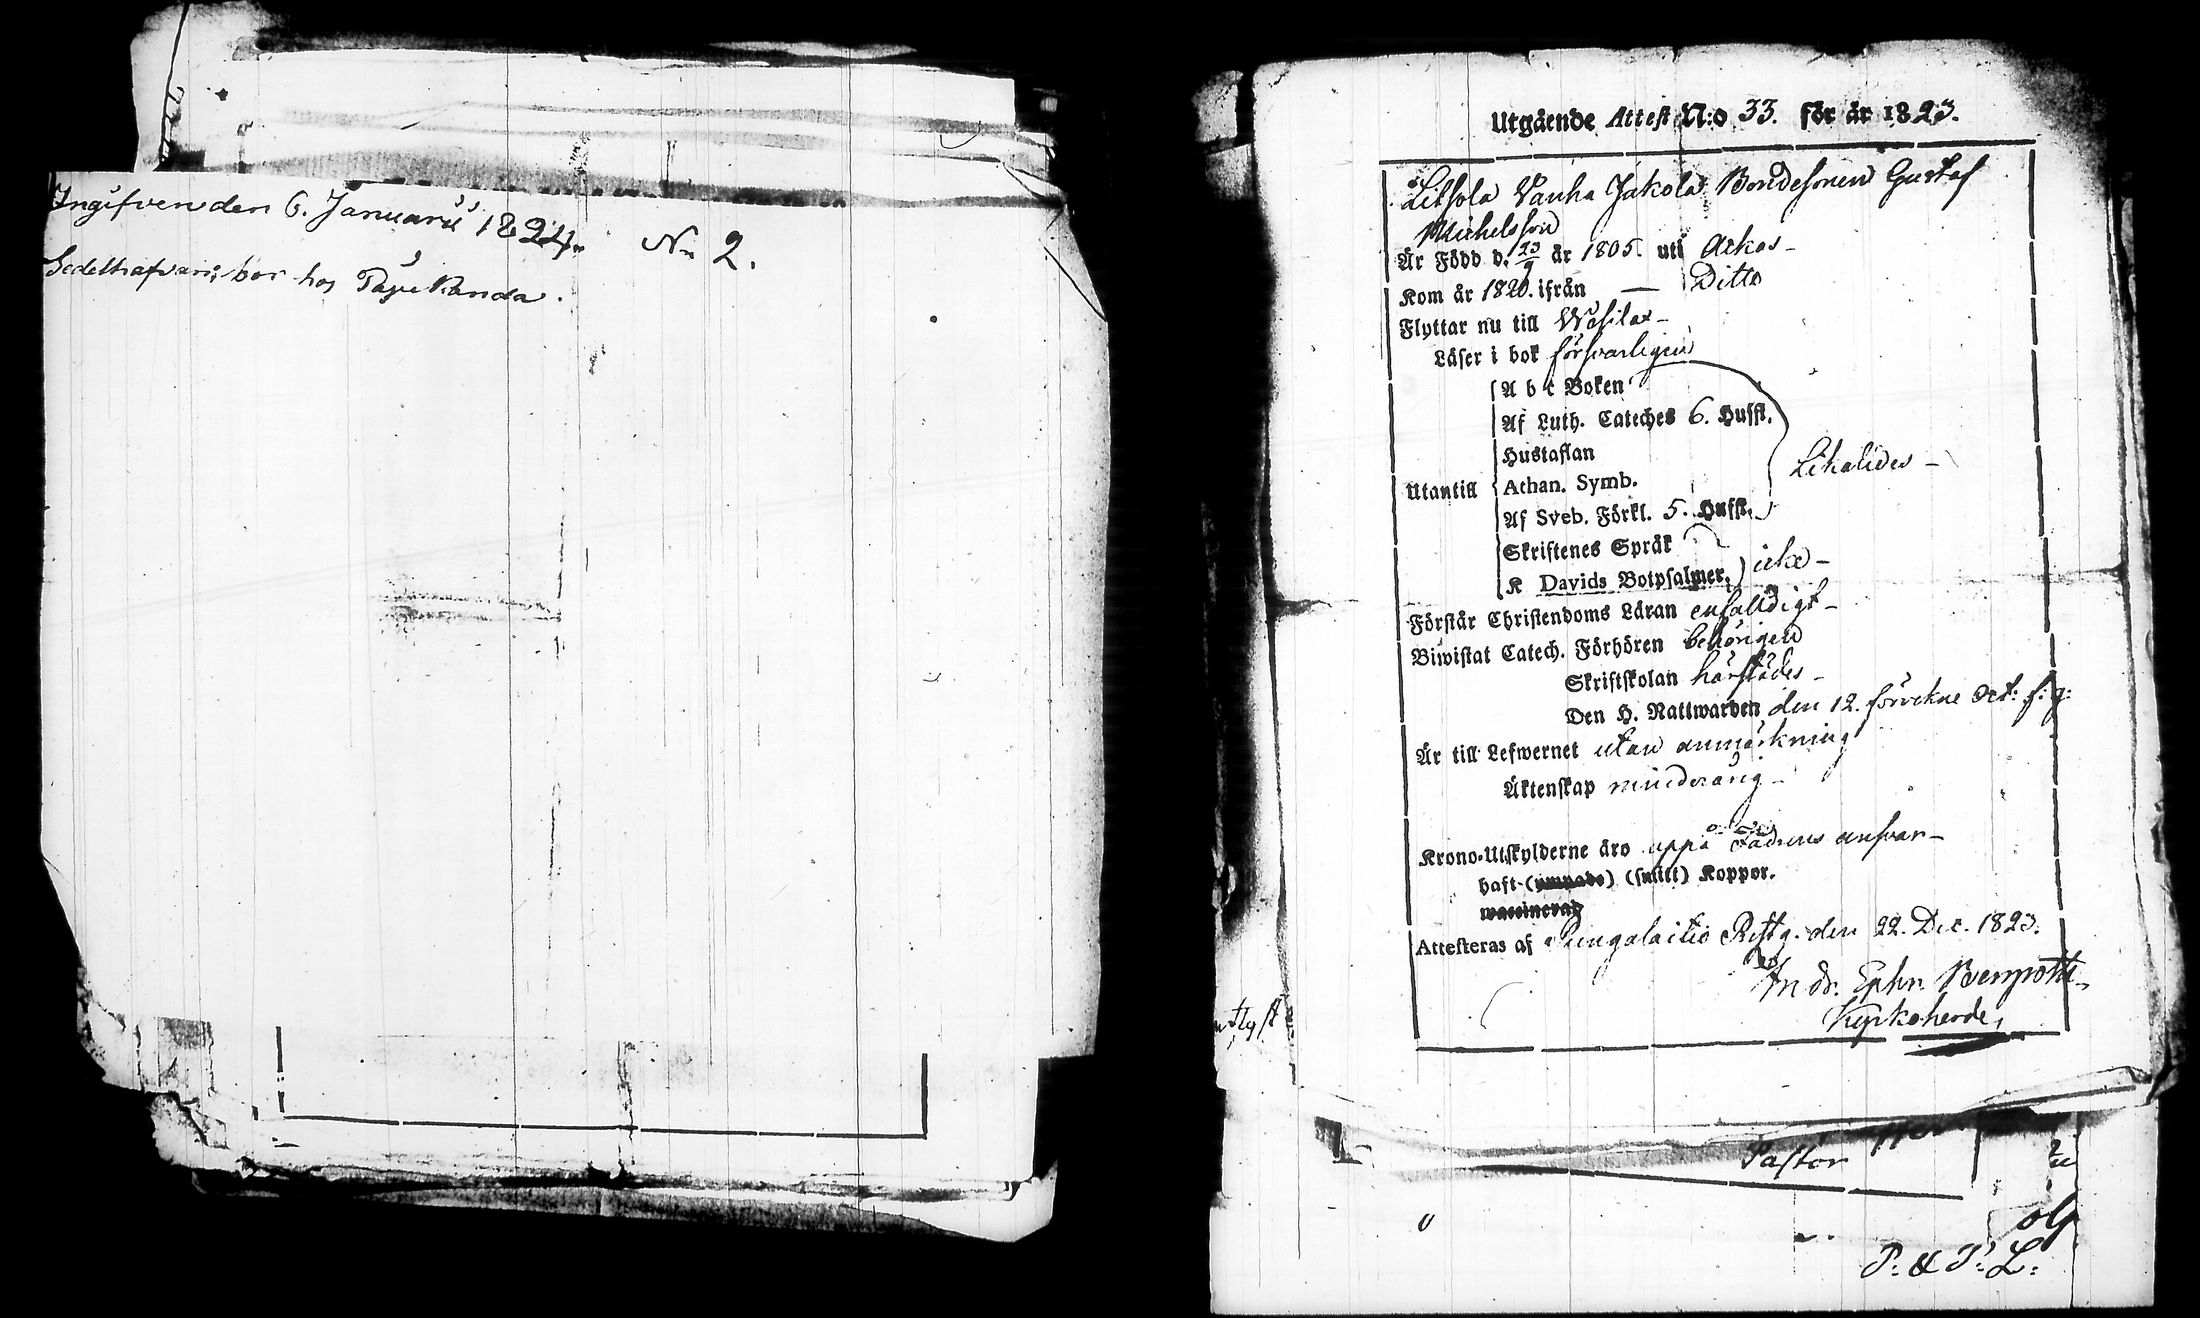 Ingifven den 6. Januarii 1824. No 2.
Sedelhafvaren bor hos Papu Randa.
Utgående Attest N:o 33. för år 1823.
Vanha Jakola Bondesonen Gustaf
Michelsson
Är Född d. 23/9 år 1805. uti
Kom år 1820. ifrån — Ditto
Flyttar nu till Wesilax –
Läser i bok försvarligen
A b c Boken
Af Luth. Cateches 6. Hufst.
Hustaflan
Utantill
Athan. Symb.
Af Sveb. Förkl. 5. Hufst.
Likaledes –
Skriftenes Språk
K Davids Botpsalmer.
icke –
Förstår Christendoms Läran enfalldigt –
Biwistat Catech. Förhören behörigen
Skriftskolan härstädes –
Den H. Nattwarden den 12. förvekne Oct:
Är till Lefwernet utan anmärkning
Äktenskap minderårig –
Krono-Utskylderne äro uppå Fadrens ansvar –
haft (ympade) (smitt) Koppor.
waccinerad
Attesteras af Pungalaitio Prestg. den 22. Dec. 1823.
Ephr.
Kyrkoherde.
Pastor
P: & P: L: